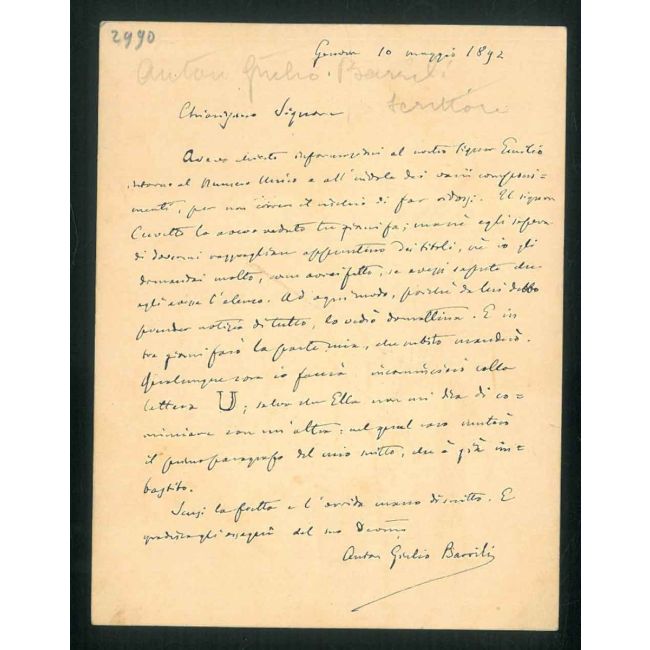 2990
Genova 10 maggio 1892
Anton Giulio Barrili
scrittore
Chiarissimo Signore,
Avevo chiesto informazioni al nostro Signor Emilio
intorno al Numero Unico e all'indole dei varii componi=
menti, per non correr il rischio di far ridossi. Il signor
la aveva veduto tre giorni fa; ma nè egli sapeva
di ragguagliare appuntino dei titoli, nè io gli
domandai molto, com'avrei fatto, se avessi saputo che
egli avesse l'elenco. Ad ogni modo, poichè da lui debbo
prender notizia di tutto, lo vedrò domattina. E in
tre giorni farò la parte mia, che subito manderò.
Qualunque cosa io faccia incomincierò colla
lettera U; salvo che Ella non mi dica di co=
minciare con un'altra: nel qual caso muterò
il primo paragrafo del mio scritto, che è già im=
bastito.
Scusi la fretta e l'orrida mano di scritto. E
gradisca gli ossequii del suo Devmo
Anton Giulio Barrili